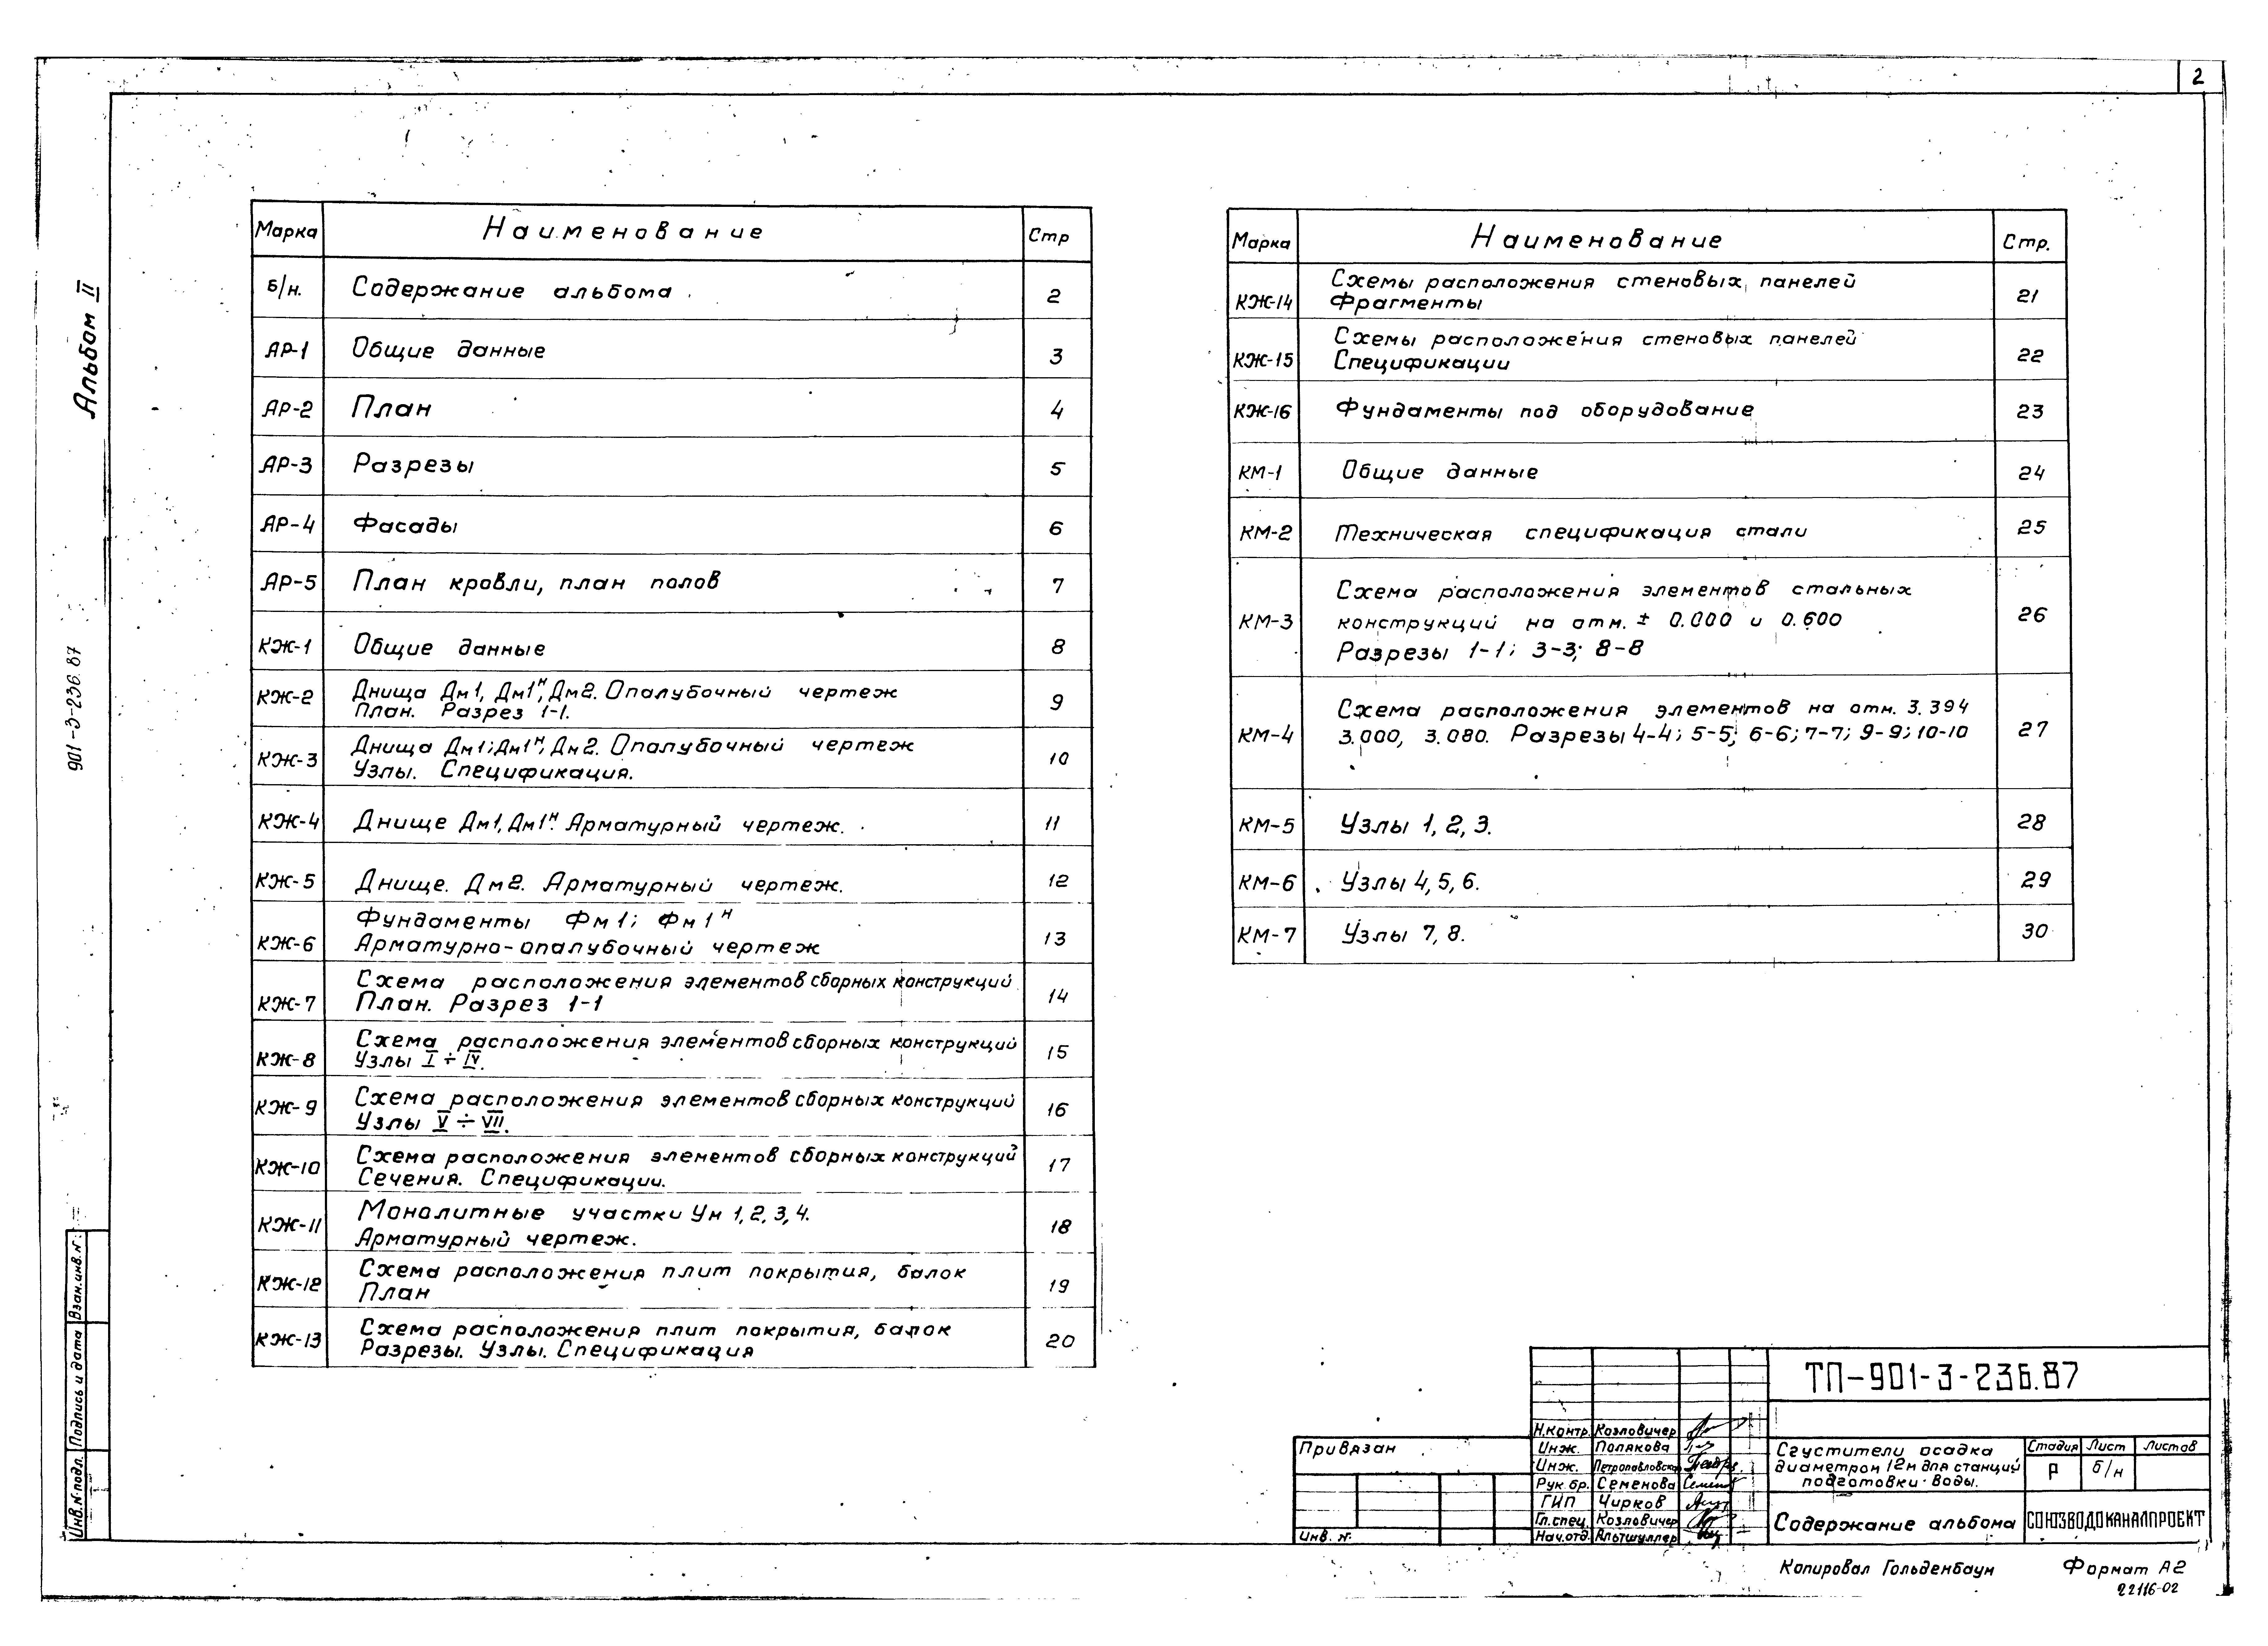 2
Альбом II
901-3-236.87
Марка Наименование Стр
б/н. Содержание альбома 2
АР-1 Общие данные 3
АР-2 План 4
АР-3 Разрезы 5
АР-4 Фасады 6
АР-5 План кровли, план полов 7
КЖ-1 Общие данные 8
КЖ-2 Днища Дм1, Дм1ᴴ, Дм2. Опалубочный чертеж 9
План. Разрез 1-1.
КЖ-3 Днища Дм1; Дм1ᴴ; Дм2. Опалубочный чертеж 10
Узлы. Спецификация.
КЖ-4 Днище Дм1, Дм1ᴴ. Арматурный чертеж. 11
КЖ-5 Днище. Дм2. Арматурный чертеж. 12
КЖ-6 Фундаменты Фм1; Фм1ᴴ 13
Арматурно-опалубочный чертеж
КЖ-7 Схема расположения элементов сборных конструкций 14
План. Разрез 1-1
КЖ-8 Схема расположения элементов сборных конструкций 15
Узлы I ÷ IV.
КЖ-9 Схема расположения элементов сборных конструкций 16
Узлы V ÷ VII.
КЖ-10 Схема расположения элементов сборных конструкций 17
Сечения. Спецификации.
КЖ-11 Монолитные участки Ум 1, 2, 3, 4. 18
Арматурный чертеж.
КЖ-12 Схема расположения плит покрытия, балок 19
План
КЖ-13 Схема расположения плит покрытия, балок 20
Разрезы. Узлы. Спецификация
Марка Наименование Стр.
КЖ-14 Схемы расположения стеновых панелей 21
Фрагменты
КЖ-15 Схемы расположения стеновых панелей 22
Спецификации
КЖ-16 Фундаменты под оборудование 23
КМ-1 Общие данные 24
КМ-2 Техническая спецификация стали 25
КМ-3 Схема расположения элементов стальных 26
конструкций на отм. ± 0.000 и 0.600
Разрезы 1-1; 3-3; 8-8
КМ-4 Схема расположения элементов на отм. 3.394 27
3.000, 3.080. Разрезы 4-4; 5-5; 6-6; 7-7; 9-9; 10-10
КМ-5 Узлы 1, 2, 3. 28
КМ-6 Узлы 4, 5, 6. 29
КМ-7 Узлы 7, 8. 30
Инв.№подл. Подпись и дата Взам.инв.№
Привязан
Инв. №
Н.контр. Козловичер
Инж. Полякова
Инж. Петропавловская
Рук.бр. Семенова
ГИП Чирков
Гл.спец. Козловичер
Нач.отд. Альтшуллер
ТП-901-3-236.87
Сгустители осадка
диаметром 12м для станций
подготовки воды.
Стадия Лист Листов
Р б/н
Содержание альбома
СОЮЗВОДОКАНАЛПРОЕКТ
Копировал Гольденбаум Формат А2
22116-02